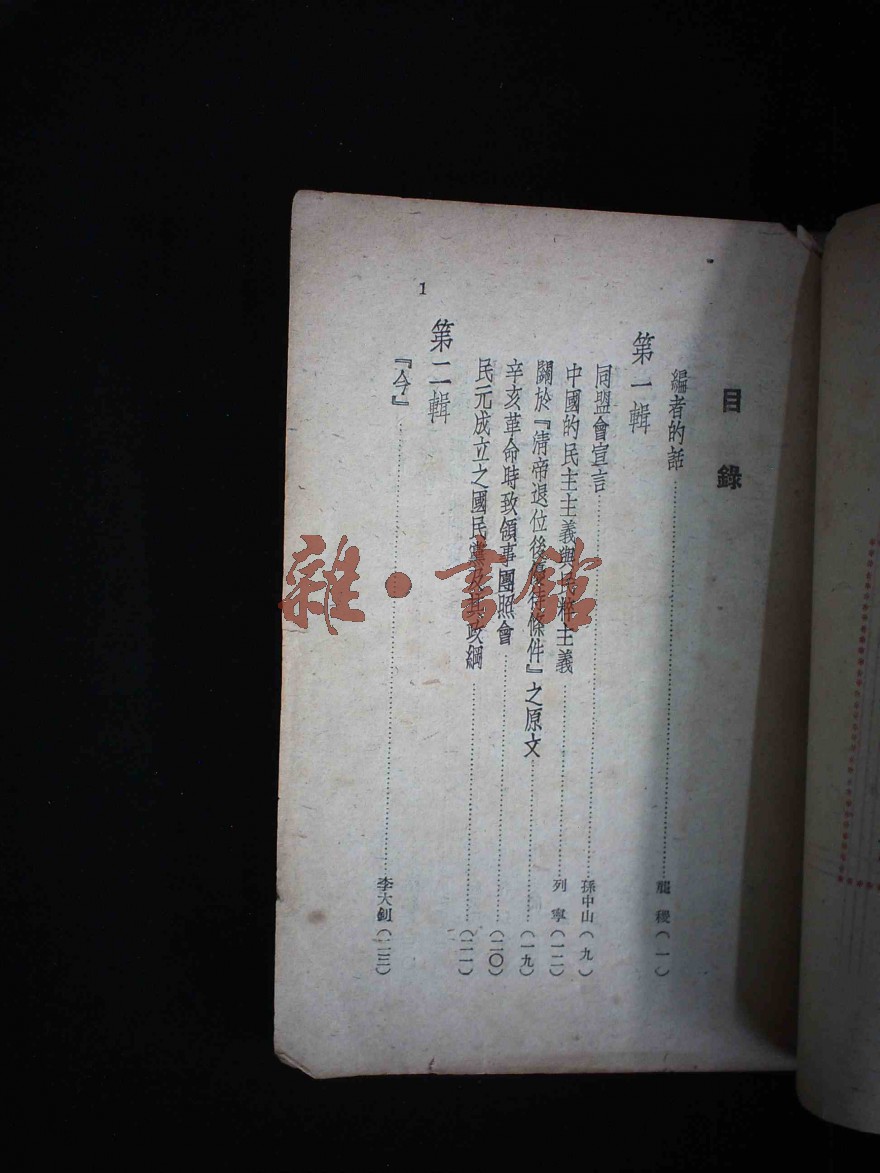 目錄
編者的話 龍稷(一)
第一輯
同盟會宣言 孫中山(九)
中國的民主主義與民粹主義 列寧(一二)
關於『清帝退位後優待條件』之原文 (一九)
辛亥革命時致領事團照會 (二〇)
民元成立之國民黨及其政綱 (二一)
第二輯
『今』 李大釗(二三)
1
雜·書館